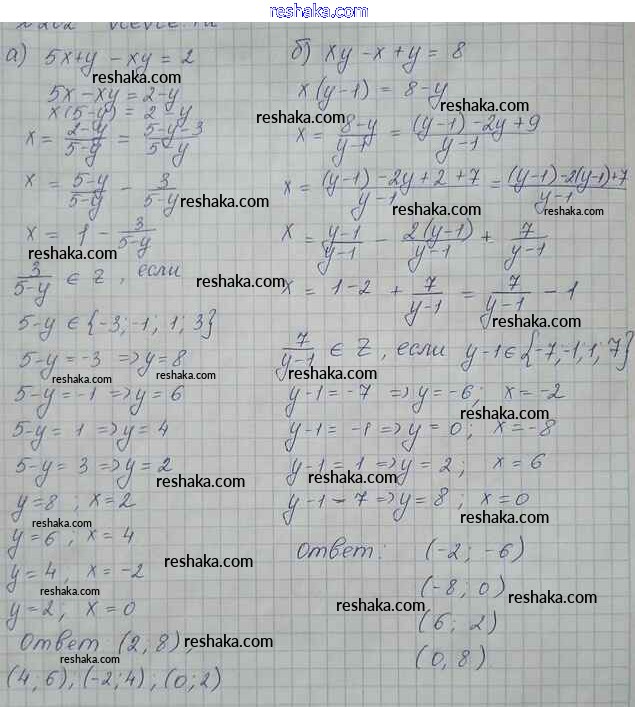 www.reshaka.com
а) 5x+y - xy = 2
reshaka.com
5x - xy = 2-y
x(5-y) = 2-y
x = 2-y/5-y = 5-y-3/5-y
reshaka.com
x = 5-y/5-y - 3/5-y
reshaka.com
x = 1 - 3/5-y
3/5-y ∈ Z, если
reshaka.com
5-y ∈ {-3; -1; 1; 3}
5-y = -3 => y = 8
reshaka.com
reshaka.com
5-y = -1 => y = 6
5-y = 1 => y = 4
5-y = 3 => y = 2
reshaka.com
y = 8; x = 2
reshaka.com
y = 6, x = 4
reshaka.com
y = 4, x = -2
reshaka.com
y = 2; x = 0
Ответ (2, 8),
reshaka.com
reshaka.com
(4; 6); (-2; 4); (0; 2)
б) xy - x + y = 8
reshaka.com
x(y-1) = 8-y
reshaka.com
x = 8-y/y-1 = (y-1) - 2y + 9/y-1
reshaka.com
x = (y-1) - 2y + 2 + 7/y-1 = (y-1) - 2(y-1) + 7/y-1
reshaka.com
x = y-1/y-1 - 2(y-1)/y-1 + 7/y-1
reshaka.com
x = 1-2 + 7/y-1 = 7/y-1 - 1
reshaka.com
7/y-1 ∈ Z, если y-1 ∈ {-7; -1; 1; 7}
reshaka.com
reshaka.com
y-1 = -7 => y = -6; x = -2
reshaka.com
y-1 = -1 => y = 0; x = -8
reshaka.com
y-1 = 1 => y = 2; x = 6
reshaka.com
y-1 - 7 => y = 8; x = 0
reshaka.com
Ответ: (-2; -6)
(-8; 0)
reshaka.com
reshaka.com
(6; 2)
(0, 8)
reshaka.com